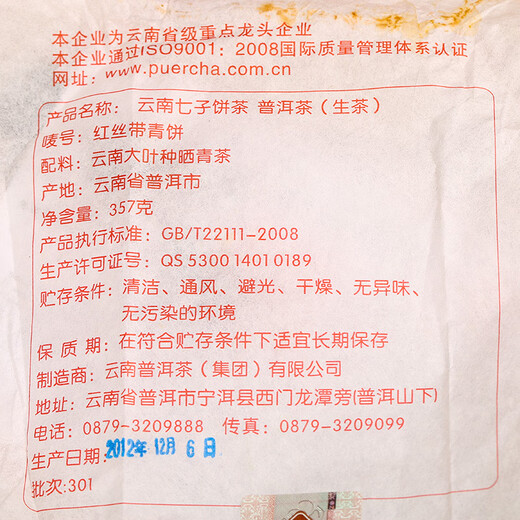 本企业为云南省级重点龙头企业
本企业通过ISO9001：2008国际质量管理体系认证
网址：www.puercha.com.cn
产品名称： 云南七子饼茶 普洱茶（生茶）
唛号：红丝带青饼
配料：云南大叶种晒青茶
产地：云南省普洱市
净含量：357克
产品执行标准：GB/T22111-2008
生产许可证号：QS 5300 1401 0189
贮存条件：清洁、通风、避光、干燥、无异味、
无污染的环境
保 质 期：在符合贮存条件下适宜长期保存
制造商：云南普洱茶（集团）有限公司
地址：云南省普洱市宁洱县西门龙潭旁(普洱山下)
电话：0879-3209888 传真：0879-3209099
生产日期：2012年 12月 6 日
批次:301